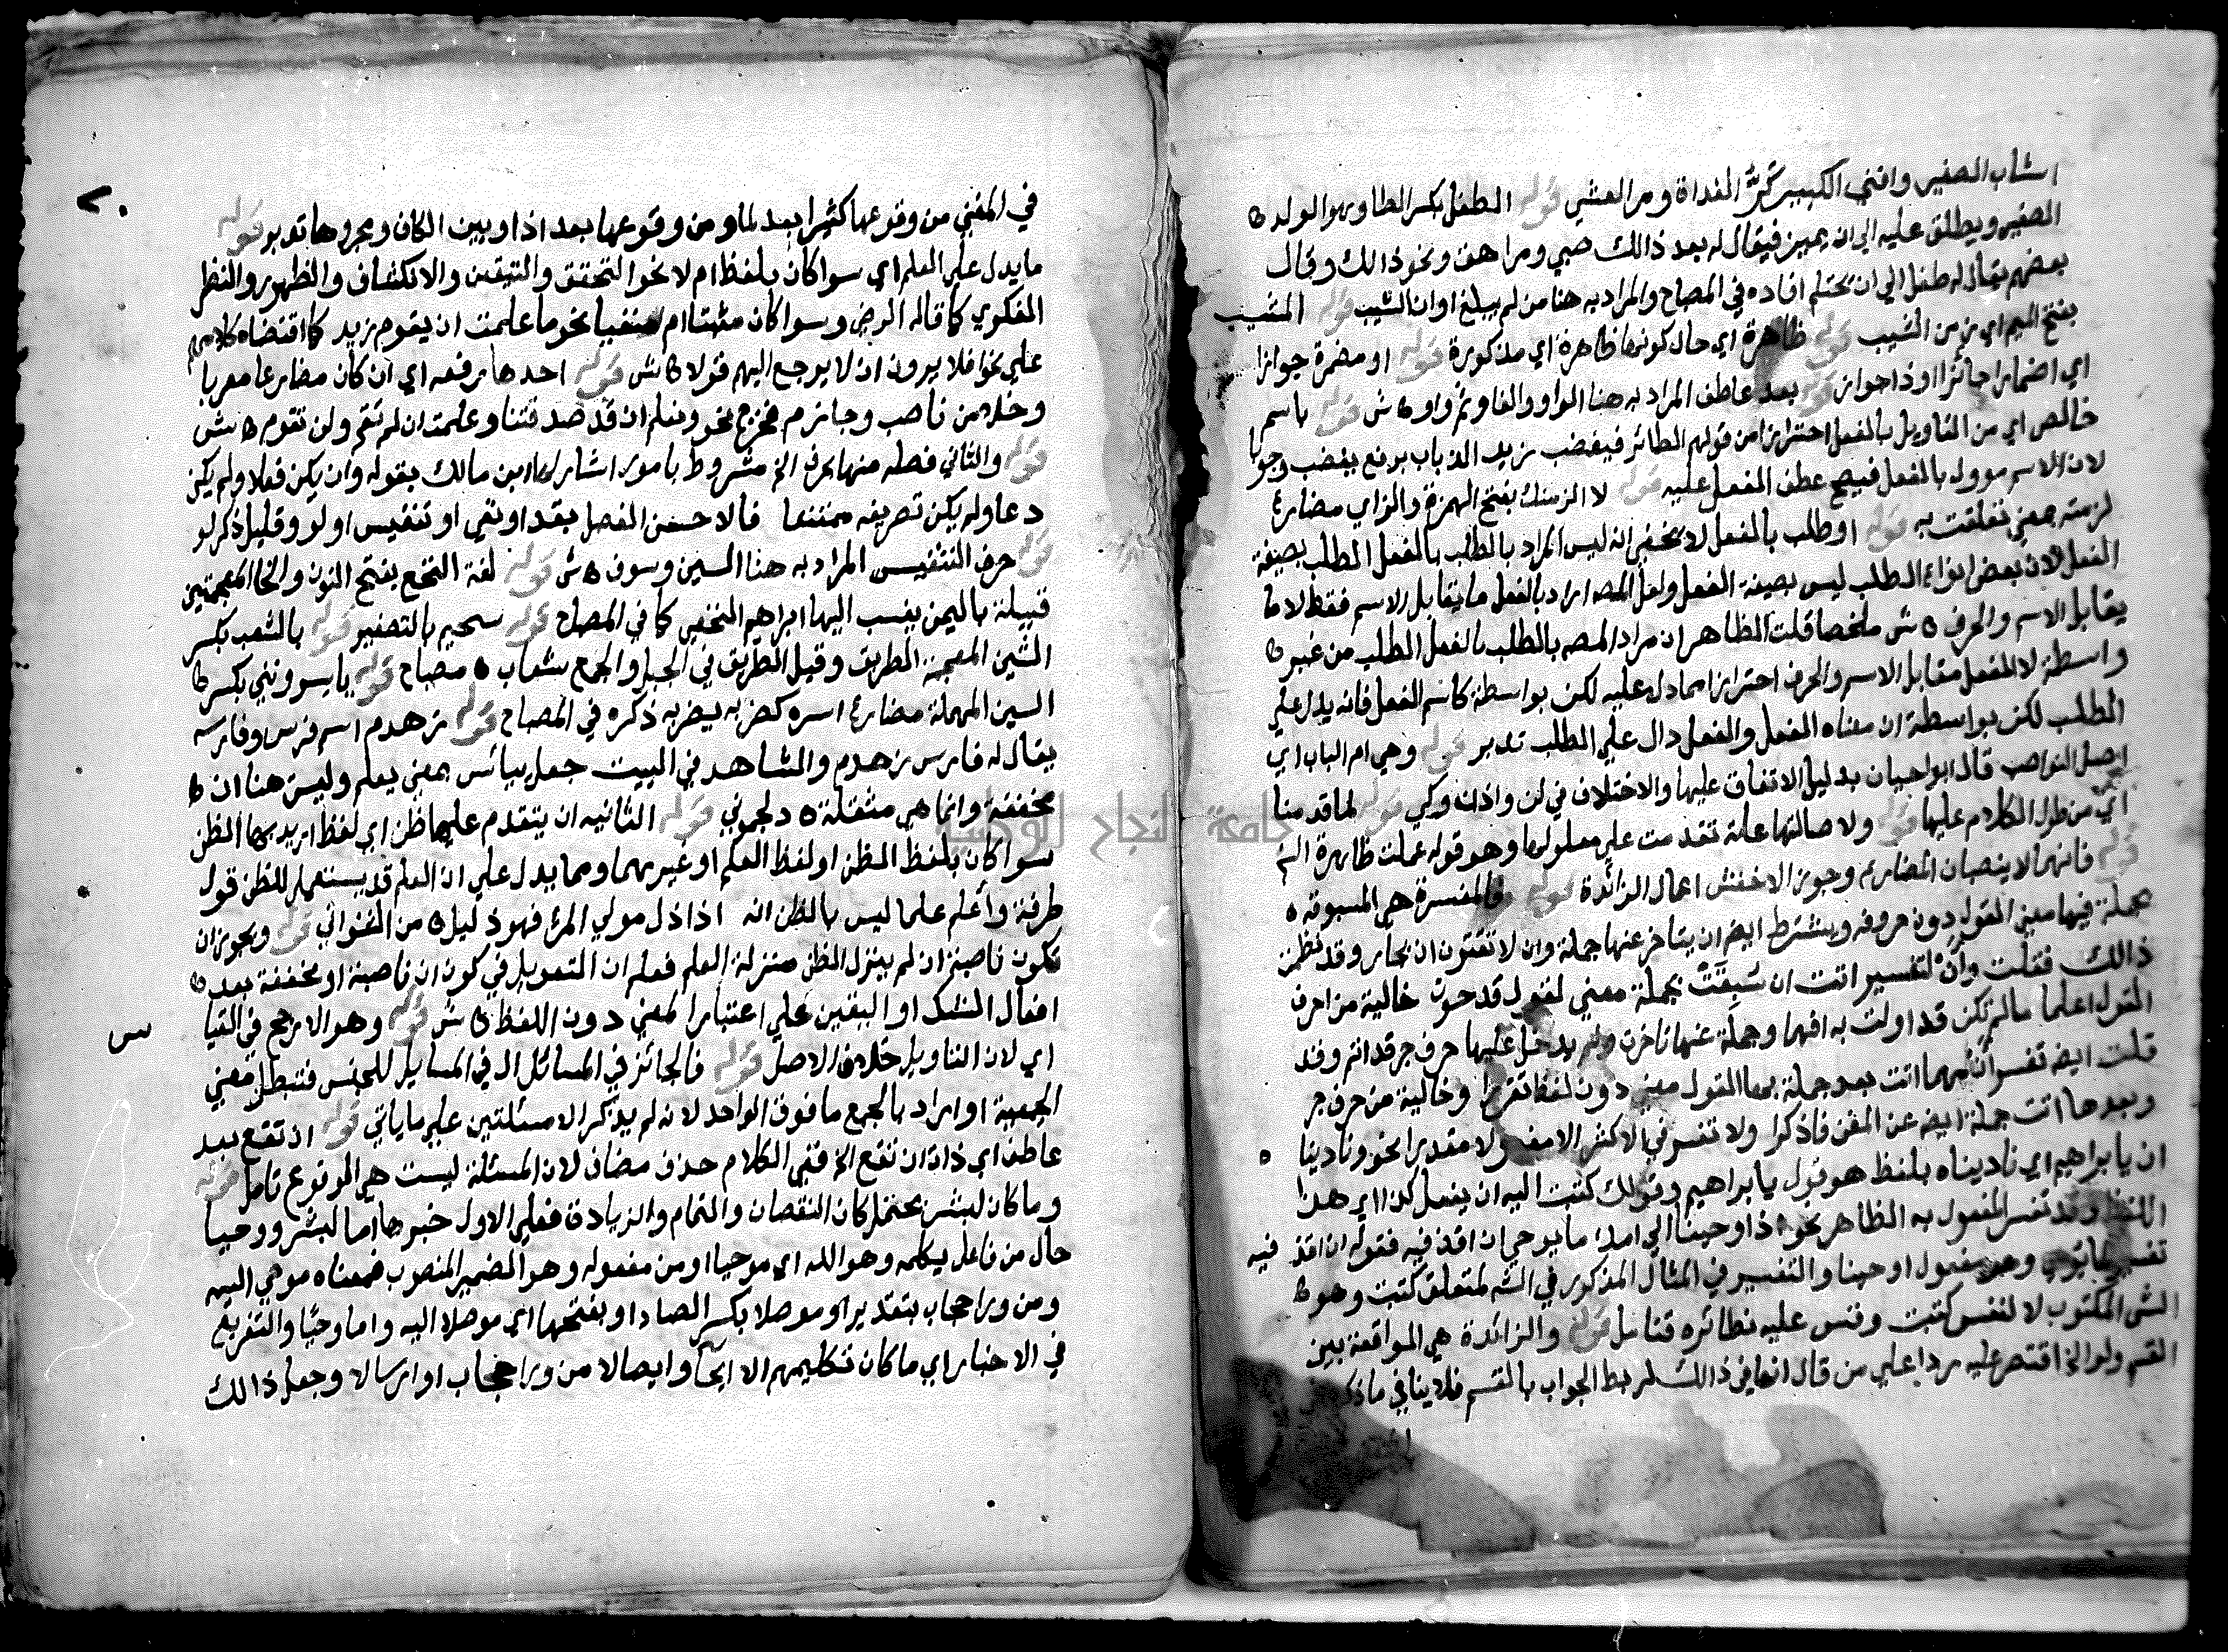 اشاب الصغير وافني الكبير كر الغداة ومر العشي قوله الطفل بكسر الطا وهو الولد
الصغير ويطلق عليه الي ان يميز فيقال له بعد ذالك صبي ومراهق ونحو ذالك وقال
بعضهم يقال له طفل الي ان يحتلم افاده في المصباح والمراد به هنا من لم يبلغ اوان الشيب قوله المشيب
بفتح الميم اي زمن الشيب قوله ظاهرة اي حال كونها ظاهرة اي مذكورة قوله او مضمرة جوازا
اي اضمارا جائزا او ذا جواز قوله بعد عاطف المراد به هنا الواو والفا وثم واو ش قوله باسم
خالص اي من التاويل بالفعل احترازا من قولهم الطائر فيغضب زيد الذباب برفع يغضب وجوبا
لان الاسم موول بالفعل فيصح عطف الفعل عليه قوله لالزمنك بفتح الهمزة والزاي مضارع
لزمته بمعني تعلقت به قوله او طلب بالفعل لا يخفي انه ليس المراد بالطلب بالفعل الطلب بصيغة
الفعل لان بعض انواع الطلب ليس بصيغة الفعل ولعل المصه اراد بالفعل ما يقابل الاسم فقط لا ما
يقابل الاسم والحرف ه ش ملخصا قلت الظاهر ان مراد المصه بالطلب بالفعل الطلب من غير
واسطة لا الفعل مقابل الاسم والحرف احترازا مما دل عليه لكن بواسطة كاسم الفعل فانه يدل علي
الطلب لكن بواسطة ان معناه الفعل والفعل دال علي الطلب تدبر قوله وهي ام الباب اي
اصل النواصب قال ابوا حيان بدليل الاتفاق عليها والاختلاف في لن واذن وكي قوله لما قدمنا
اي من طول الكلام عليها قوله ولاصالتها علة تقدمت علي معلولها وهو قوله عملت ظاهرة الخ
قوله فانهما لا ينصبان المضارع وجوز الاخفش اعمال الزائدة قوله فالمفسرة هي المسبوقه
بجملة فيها معني القول دون حروفه ويشترط ايضه ان يتاخر عنها جملة وان لا تقترن ان بجار وقد نظمت
ذالك فقلت وأن لتفسير اتت ان سبقت بجملة معني لقول قد حوت خالية من احرف
القول اعلما ما لم تكن قد اولت به افهما وجملة عنها تاخرت ولم يدخل عليها حرف جر قد انم وقد
قلت ايضه تفسر أن مهما اتت بعد جملة بها القول معني دون لفظ تقررا وخالية من حرف جر
وبعدها اتت جملة ايضه عن المغن فاذكرا ولا تفسر في الاكثر الا مفعولا مقدرا نحو وناديناه
ان يابراهيم اي ناديناه بلفظ هو قول يابراهيم وقولك كتبت اليه ان يفعل كذا اي هذا
اللفظ وقد تفسر المفعول به الظاهر نحو اذ اوحينا الي امك ما يوحي ان اقذفيه فقوله ان اقذفيه
تفسير ما يوحي وهو مفعول اوحينا والتفسير في المثال المذكور في الشه لمتعلق كتبت وهو
الشي المكتوب لا لنفس كتبت وقس عليه نظائره فتامل قوله والزائدة هي الواقعة بين
القسم ولو الخ اقتصر عليه ردا علي من قال انها في ذالك لربط الجواب بالقسم فلا ينافي ما ذكره
في المغني من وقوعها كثيرا بعد لما ومن وقوعها بعد اذا وبين الكاف ومجرورها تدبر قوله
ما يدل علي العلم اي سوا كان بلفظ ام لا نحو التحقق والتيقن والانكشاف والظهور والنظر
الفكري كما قاله الرضي وسوا كان مثبتا ام منفيا نحو ما علمت ان يقوم زيد كما اقتضاه كلامهم
علي نحو افلا يرون ان لا يرجع اليهم قولا ه ش قوله احدها رفعه اي ان كان مضارعا معربا
وخلا من ناصب وجازم فخرج نحو ونعلم ان قد صدقتنا وعلمت ان لم تقم ولن تقوم ه ش
قوله والثاني فصله منها بحرف الخ مشروط بامور اشار لها ابن مالك بقوله وان يكن فعلا ولم يكن
دعا ولم يكن تصريفه ممتنعا فالاحسن الفصل بقد او نفي او تنفيس او لو وقليل ذكر لو
قوله حرف التنفيس المراد به هنا السين وسوف ه ش قوله لغة النخع بفتح النون والخا المعجمتين
قبيلة باليمن ينسب اليها ابراهيم النخعي كما في المصباح قوله سحيم بالتصغير قوله بالشعب بكسر
الشين المعجمة الطريق وقيل الطريق في الجبل والجمع شعاب ه مصباح قوله ياسرونني بكسر
السين المهملة مضارع اسره كضربه يضربه ذكره في المصباح قوله زهدم اسم فرس وفارسه
يقال له فارس زهدم والشاهد في البيت جعل ييائس بمعني يعلم وليس هنا ان
مخففة وانما هي مثقلة ه دلجموني قوله الثانيه ان يتقدم عليها ظن اي لفظ اريد بها الظن
سوا كان بلفظ الظن او لفظ العلم او غيرهما ومما يدل علي ان العلم قد يستعمل للظن قول
طرفة وأعلم علما ليس بالظن انه اذا ذل مولي المرء فهو ذليل ه من الغنواني قوله ويجوز ان
تكون ناصبة ان لم ينزل الظن منزلة العلم فعلم ان التعويل في كون ان ناصبة او مخففة بعد
افعال الشك او اليقين علي اعتبار المعني دون اللفظ ه ش قوله وهو الارجح في القيا
س
اي لان التاويل خلاف الاصل قوله فالجائز في المسائل ال في المسايل للجنس فتبطل معني
الجمعية او اراد بالجمع ما فوق الواحد لانه لم يذكر الا مسئلتين علي ما ياتي قوله ان تقع بعد
عاطف اي ذات ان تقع الخ ففي الكلام حذف مضاف لان المسئلة ليست هي الوقوع تامل قوله
وما كان لبشر يحتمل كان النقصان والتمام والزيادة فعلي الاول خبرها اما لبشر ووحيا
حال من فاعل يكلمه وهو الله اي موحيا او من مفعوله وهو الضمير المنصوب فمعناه موحي اليه
ومن ورا حجاب بتقدير او موصلا بكسر الصاد او بفتحها اي موصلا اليه واما وحيا والتفريغ
في الاخبار اي ما كان تكليمهم الا ايحا وايصالا من ورا حجاب او ارسالا وجعل ذالك
جامعة النجاح الوطنية